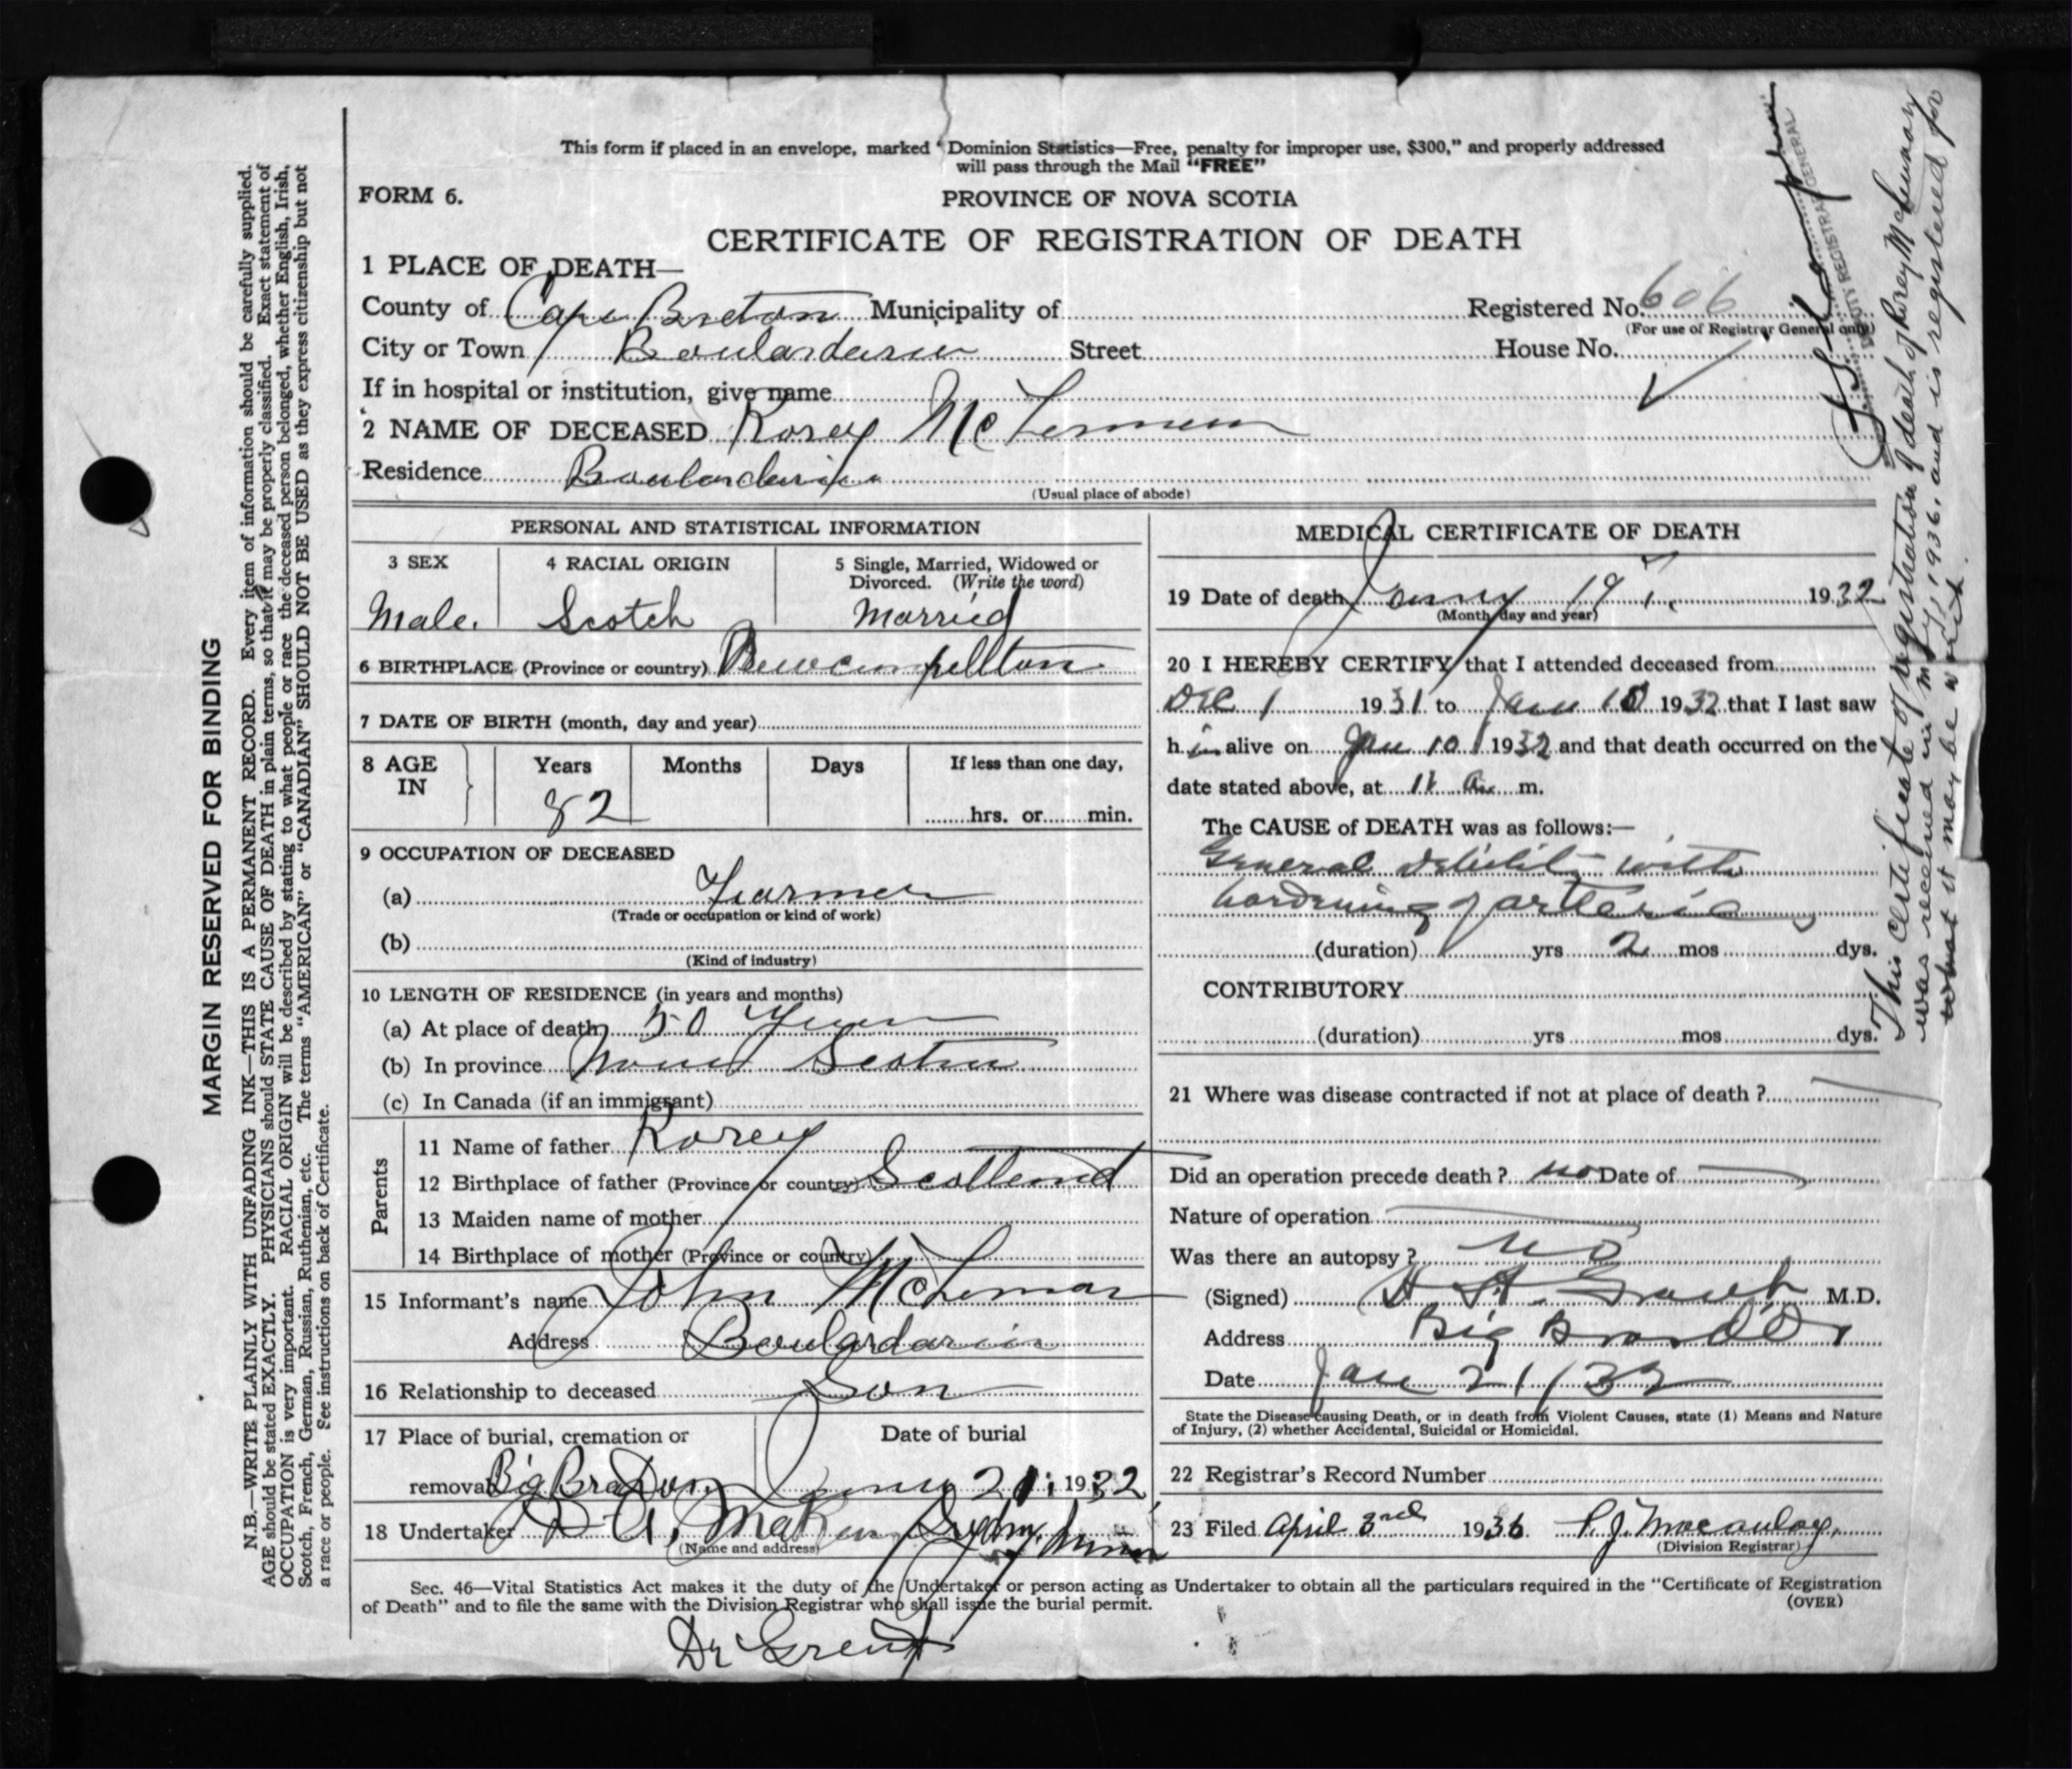 This form if placed in an envelope, marked "Dominion Statistics—Free, penalty for improper use, $300," and properly addressed
will pass through the Mail "FREE"
FORM 6.
PROVINCE OF NOVA SCOTIA
CERTIFICATE OF REGISTRATION OF DEATH
1 PLACE OF DEATH—
County of Cape Breton Municipality of
Registered No. 606
(For use of Registrar General only)
City or Town Boularderie Street House No.
If in hospital or institution, give name
2 NAME OF DECEASED Rorey McLennan
Residence Boularderie
(Usual place of abode)
PERSONAL AND STATISTICAL INFORMATION
3 SEX
Male.
4 RACIAL ORIGIN
Scotch
5 Single, Married, Widowed or
Divorced. (Write the word)
Married
6 BIRTHPLACE (Province or country)
7 DATE OF BIRTH (month, day and year)
8 AGE
IN
Years
82
Months
Days
If less than one day,
hrs. or min.
9 OCCUPATION OF DECEASED
(a) Farmer
(Trade or occupation or kind of work)
(b)
(Kind of industry)
10 LENGTH OF RESIDENCE (in years and months)
(a) At place of death 50 Years
(b) In province Nova Scotia
(c) In Canada (if an immigrant)
Parents
11 Name of father Rorey
12 Birthplace of father (Province or country) Scotland
13 Maiden name of mother
14 Birthplace of mother (Province or country)
15 Informant's name John McLennan
Address Boulardarie
16 Relationship to deceased Son
17 Place of burial, cremation or
removal Big Brador
Date of burial
21 1932
18 Undertaker
(Name and address)
MEDICAL CERTIFICATE OF DEATH
19 Date of death 19 1932
(Month, day and year)
20 I HEREBY CERTIFY that I attended deceased from
Dec 1 1931 to Jan 10 1932 that I last saw
h im alive on Jan 10 1932 and that death occurred on the
date stated above, at 11 a m.
The CAUSE of DEATH was as follows:—
General debility with
hardening of arteries
(duration) yrs 2 mos dys.
CONTRIBUTORY
(duration) yrs mos dys.
21 Where was disease contracted if not at place of death?
Did an operation precede death? no Date of
Nature of operation
Was there an autopsy? no
(Signed) M.D.
Address Big Brador
Date Jan 21/32
State the Disease causing Death, or in death from Violent Causes, state (1) Means and Nature
of Injury, (2) whether Accidental, Suicidal or Homicidal.
22 Registrar's Record Number
23 Filed April 3rd 1936. P. J. Macaulay.
(Division Registrar)
Sec. 46—Vital Statistics Act makes it the duty of the Undertaker or person acting as Undertaker to obtain all the particulars required in the "Certificate of Registration
of Death" and to file the same with the Division Registrar who shall issue the burial permit.
(OVER)
Dr Grent
MARGIN RESERVED FOR BINDING
N.B.—WRITE PLAINLY WITH UNFADING INK—THIS IS A PERMANENT RECORD. Every item of information should be carefully supplied.
AGE should be stated EXACTLY. PHYSICIANS should STATE CAUSE OF DEATH in plain terms, so that it may be properly classified. Exact statement of
OCCUPATION is very important. RACIAL ORIGIN will be described by stating to what people or race the deceased person belonged, whether English, Irish,
Scotch, French, German, Russian, Ruthenian, etc. The terms "AMERICAN" or "CANADIAN" SHOULD NOT BE USED as they express citizenship but not
a race or people. See instructions on back of Certificate.
This certificate of registration of death of Rorey McLennan
was received in May, 1936, and is registered for
what it may be worth.
DEPUTY REGISTRAR GENERAL